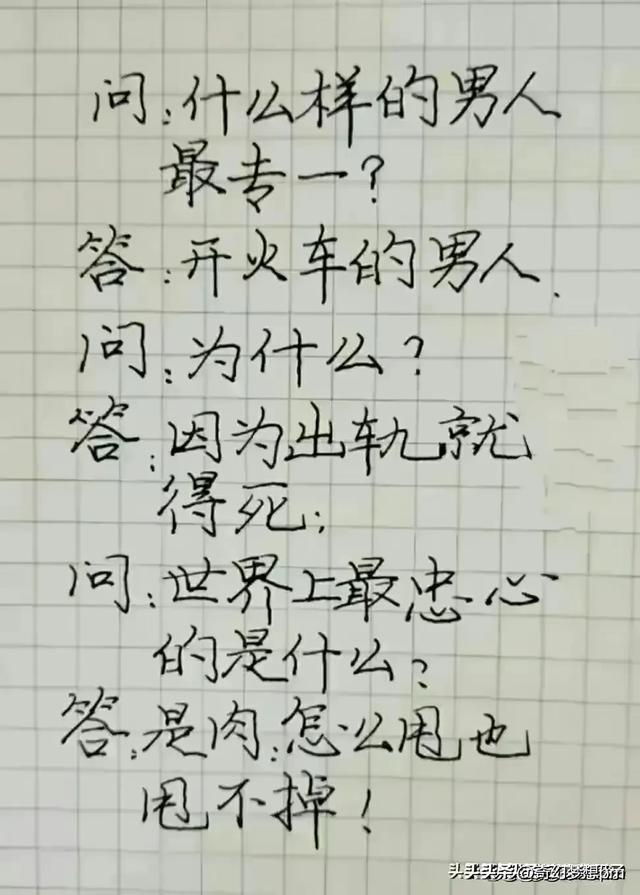 问:什么样的男人
最专一?
答:开火车的男人.
问:为什么?
答:因为出轨就
得死;
问:世界上最忠心
的是什么?
答:是肉:怎么甩也
甩不掉!